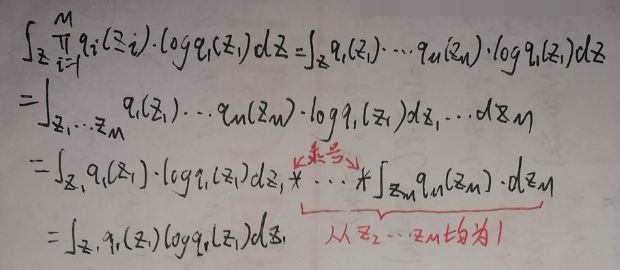 ∫_Z ∏_{i=1}^{M} q_i(z_i)·log q_1(z_1) dZ = ∫_Z q_1(z_1)·…q_M(z_M)·log q_1(z_1) dZ
= ∫_{z_1…z_M} q_1(z_1)…q_M(z_M)·log q_1(z_1) dz_1…dz_M
乘号
= ∫_{z_1} q_1(z_1)·log q_1(z_1) dz_1 * … * ∫_{z_M} q_M(z_M)·dz_M
= ∫_{z_1} q_1(z_1) log q_1(z_1) dz_1 从 z_2…z_M 均为1